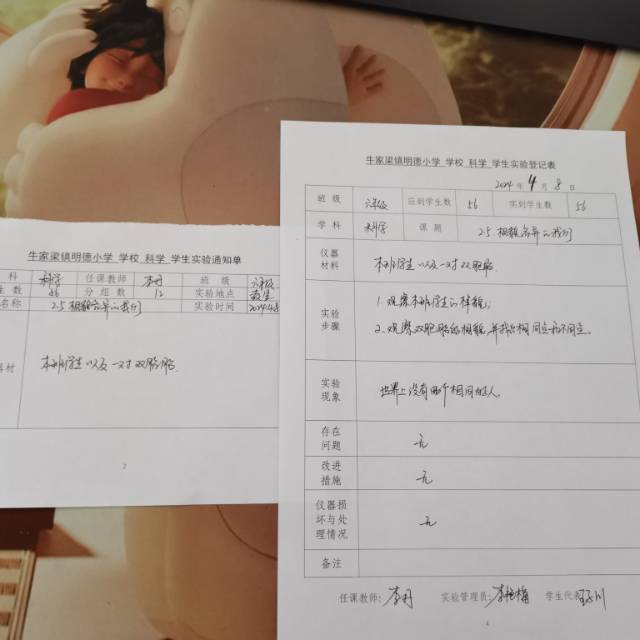 牛家梁镇明德小学 学校 科学 学生实验通知单
科 科学 任课教师 李丹 班 级 六年级
生数 56 分 组 数 12 实验地点 教室
名称 2.5 相貌各异的我们 实验时间
器材 本班学生以及一对双胞胎
2
牛家梁镇明德小学 学校 科学 学生实验登记表
2024 年 4 月 8 日
班 级 六年级 应到学生数 56 实到学生数 56
学 科 科学 课 题 2.5 相貌各异的我们
仪器
材料 本班学生以及一对双胞胎
实验
步骤
1. 观察本班学生的样貌;
2. 观察双胞胎的相貌,并找出相同点和不同点。
实验
现象 世界上没有两个相同的人。
存在
问题 无
改进
措施 无
仪器损
坏与处
理情况 无
备注
任课教师: 李丹 实验管理员: 学生代表